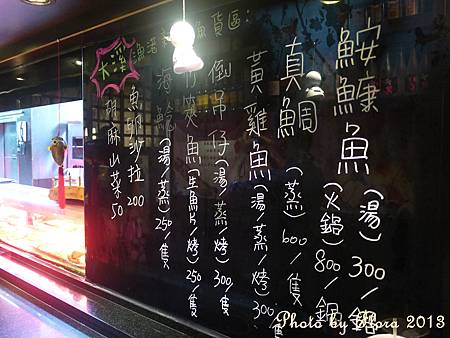 大溪漁湯 魚貨區:
鮟鱇魚(湯)300/鍋
(火鍋)800/鍋
真鯛(蒸)600/隻
黃雞魚(湯/蒸/烤)300
倒吊仔(湯/蒸/烤)300/隻
竹筴魚(生魚片/烤)250/隻
海鱺(湯/蒸)250/隻
魚卵沙拉200
胡麻山菜50
Photo by Flora 2013